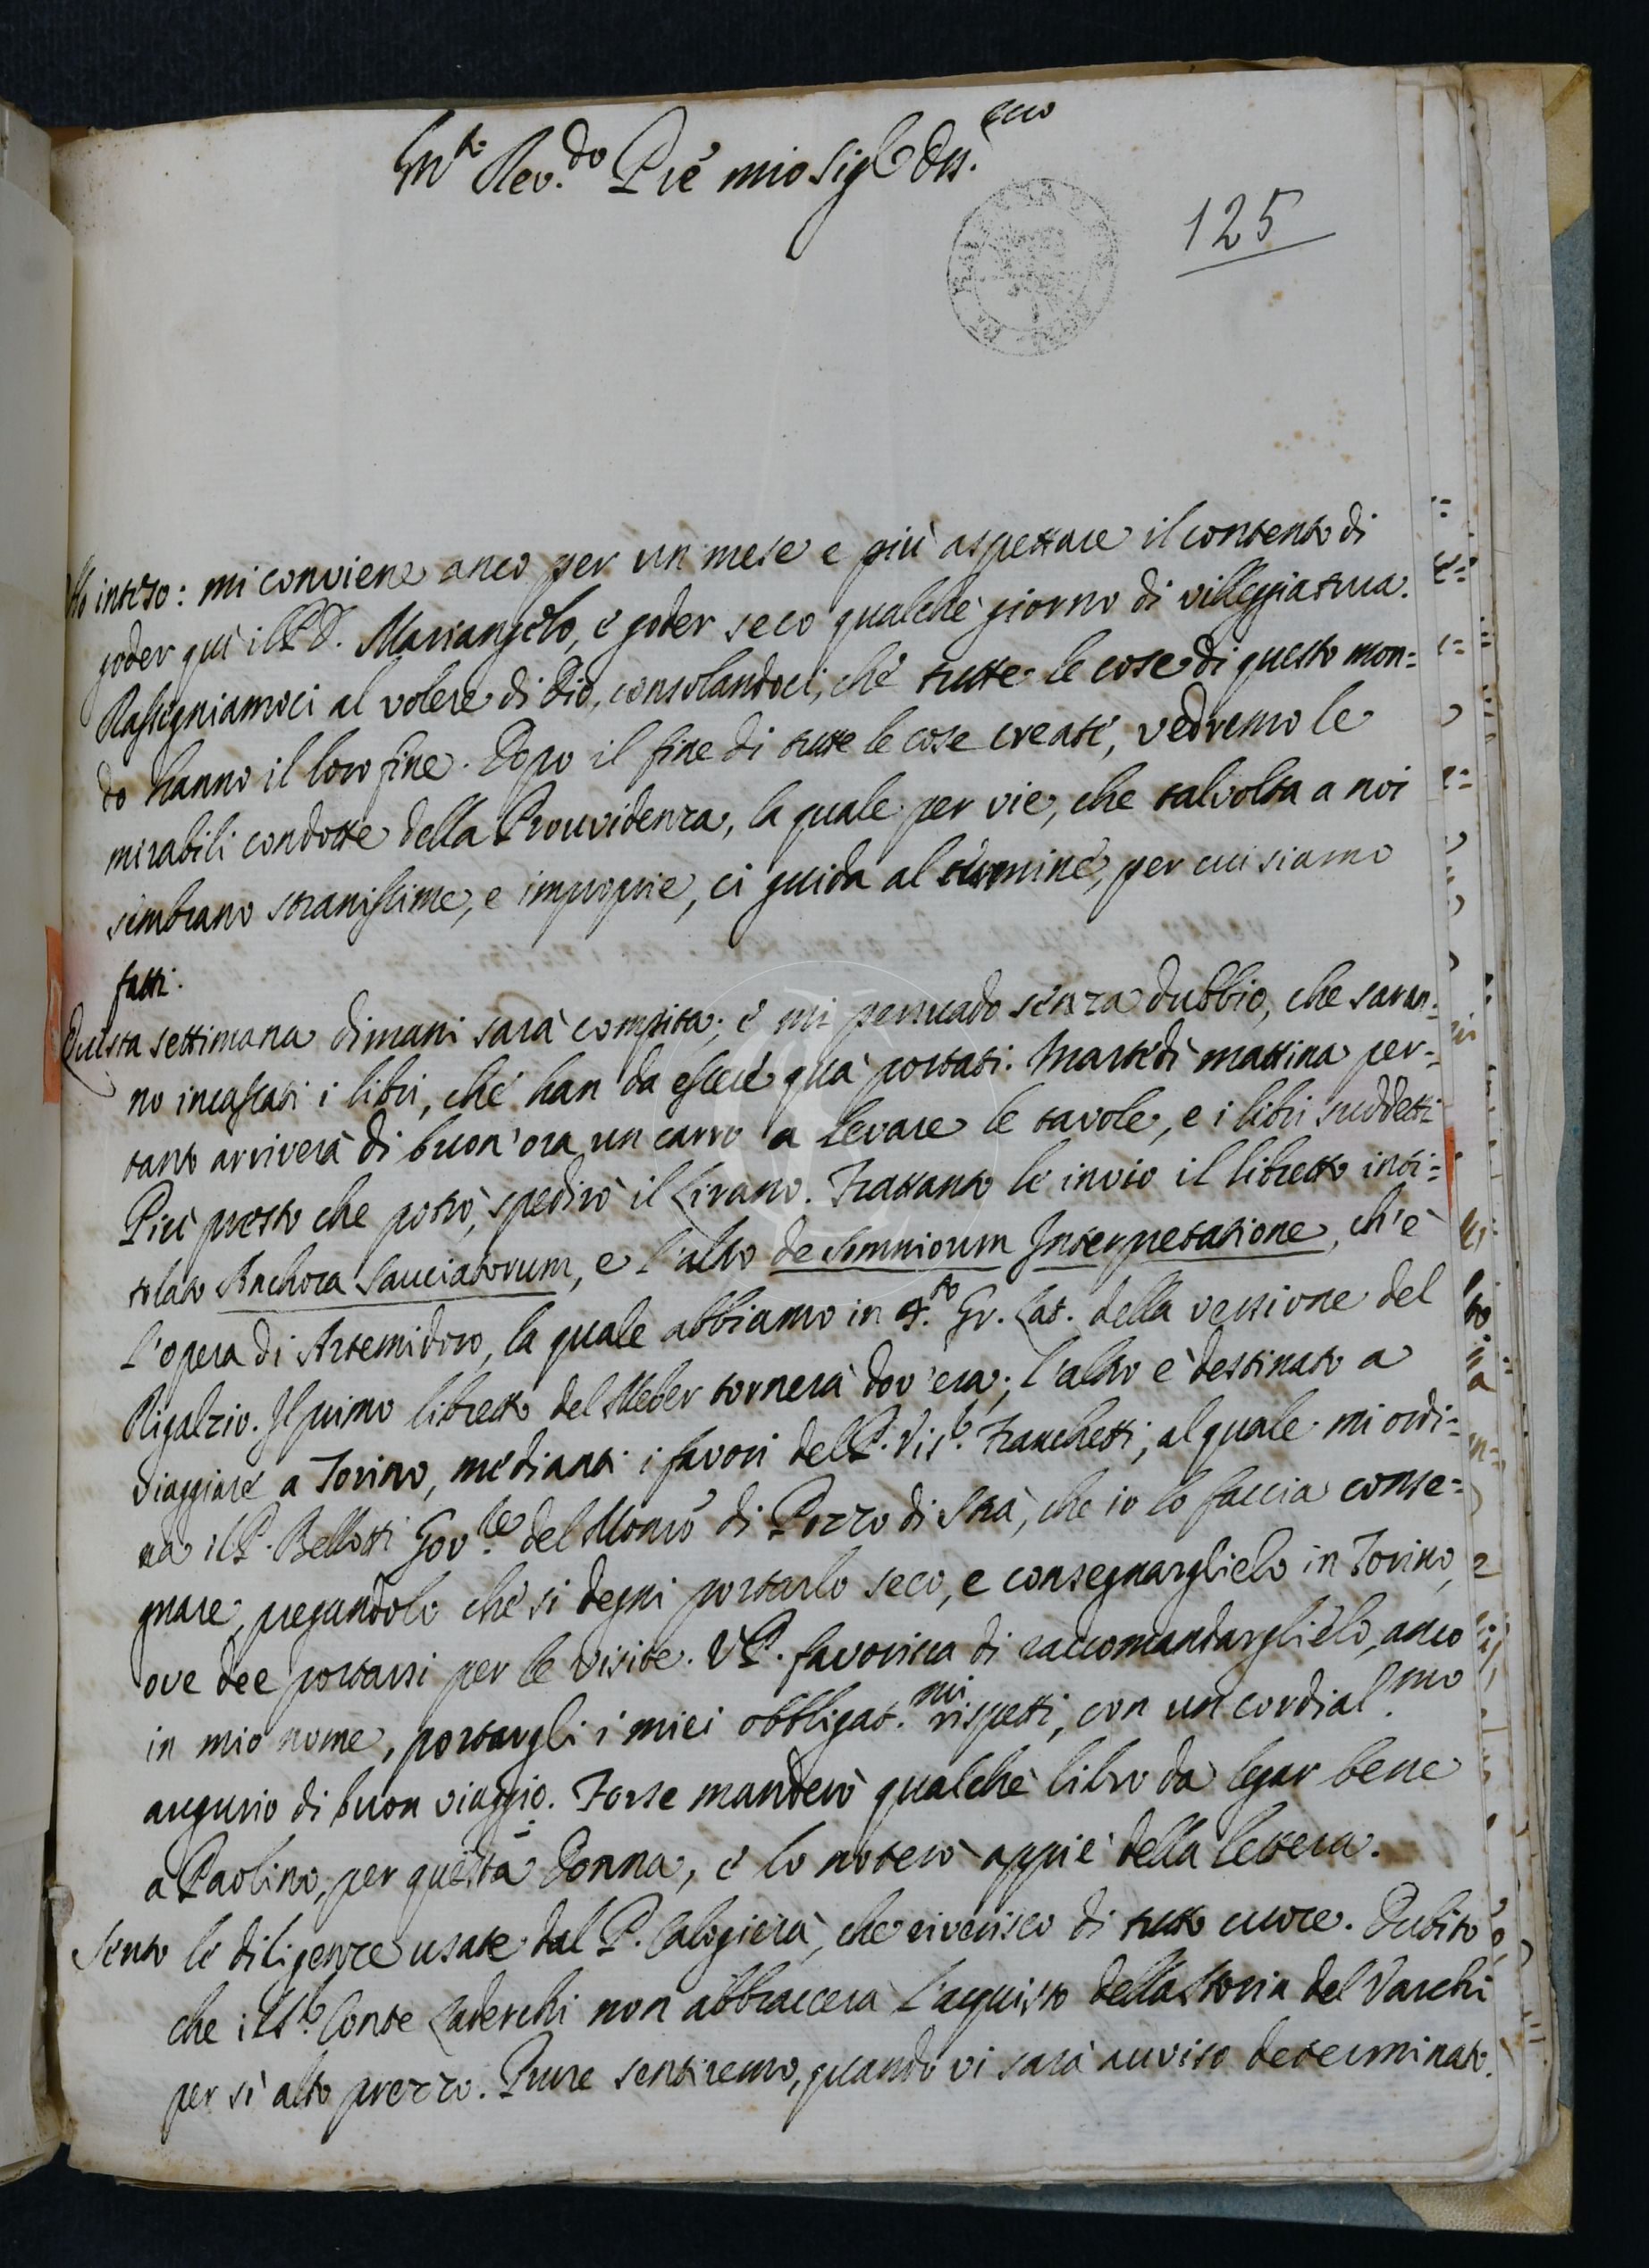 M.to Rev.do P.re mio Sig.e
125
Ho inteso: mi conviene anco per un mese e più aspettare il contento di
goder quì il P.D. Mariangelo, e goder seco qualche giorno di villeggiatura.
Rassegniamoci al volere di Dio, consolandoci, che tutte le cose di questo mon=
do hanno il loro fine. Dopo il fine di tutte le cose create, vedremo le
mirabili condotte della Provvidenza, la quale per vie, che talvolta a noi
sembrano stranissime, e improprie, ci guida al termine, per cui siamo
fatti.
Questa settimana dimani sarà compita; e mi persuado senza dubbio, che saran=
no incassati i libri, che han da essere quà portati. Martedì mattina per=
tanto arriverà di buon'ora un carro a levare le tavole, e i libri suddetti
Più presto che potrò, spedirò il Lirano. Frattanto le invio il libretto inti=
tolato Anchora Sauciatorum, e l'altro de Somniorum Interpretatione, ch'è
l'opera di Artemidoro, la quale abbiamo in 4.to Gr. Lat. della versione del
Rigalzio. Il primo libretto del Weber tornerà dov'era; l'altro è destinato a
viaggiare a Torino, mediante i favori del P. Vis.e Franchetti, al quale mi ordi=
na il P. Bellotti Gov.re del Mon.ro di Pozzo di Strà, che io lo faccia conse=
gnare, pregandolo che si degni portarlo seco, e consegnarglielo in Torino,
ove dee portarsi per le visite. V.P. favorisca di raccomandarglielo, anco
in mio nome, portargli i miei obbligat.mi rispetti, con un cordial.mo
augurio di buon viaggio. Forse manderò qualche libro da legar bene
a Paolino, per questa Donna, e lo noterò appiè della lettera.
Sento le diligenze usate dal P. Calogierà, che riverisco di tutto cuore. Dubito
che il S.e Conte Laderchi non abbraccerà l'acquisto della Storia del Varchi
per sì alto prezzo. Pure sentiremo, quando vi sarà avviso determinato.